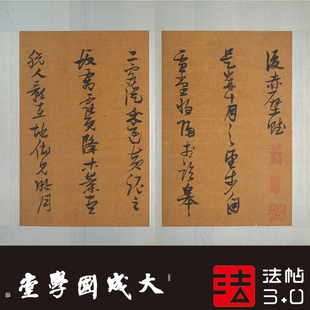 後赤壁賦
是歲十月之望步自
雪堂將歸於臨皋
二客從予過黃泥之
坂霜露既降木葉盡
脫人影在地仰見明月
大成國學堂
法
法帖
3.0